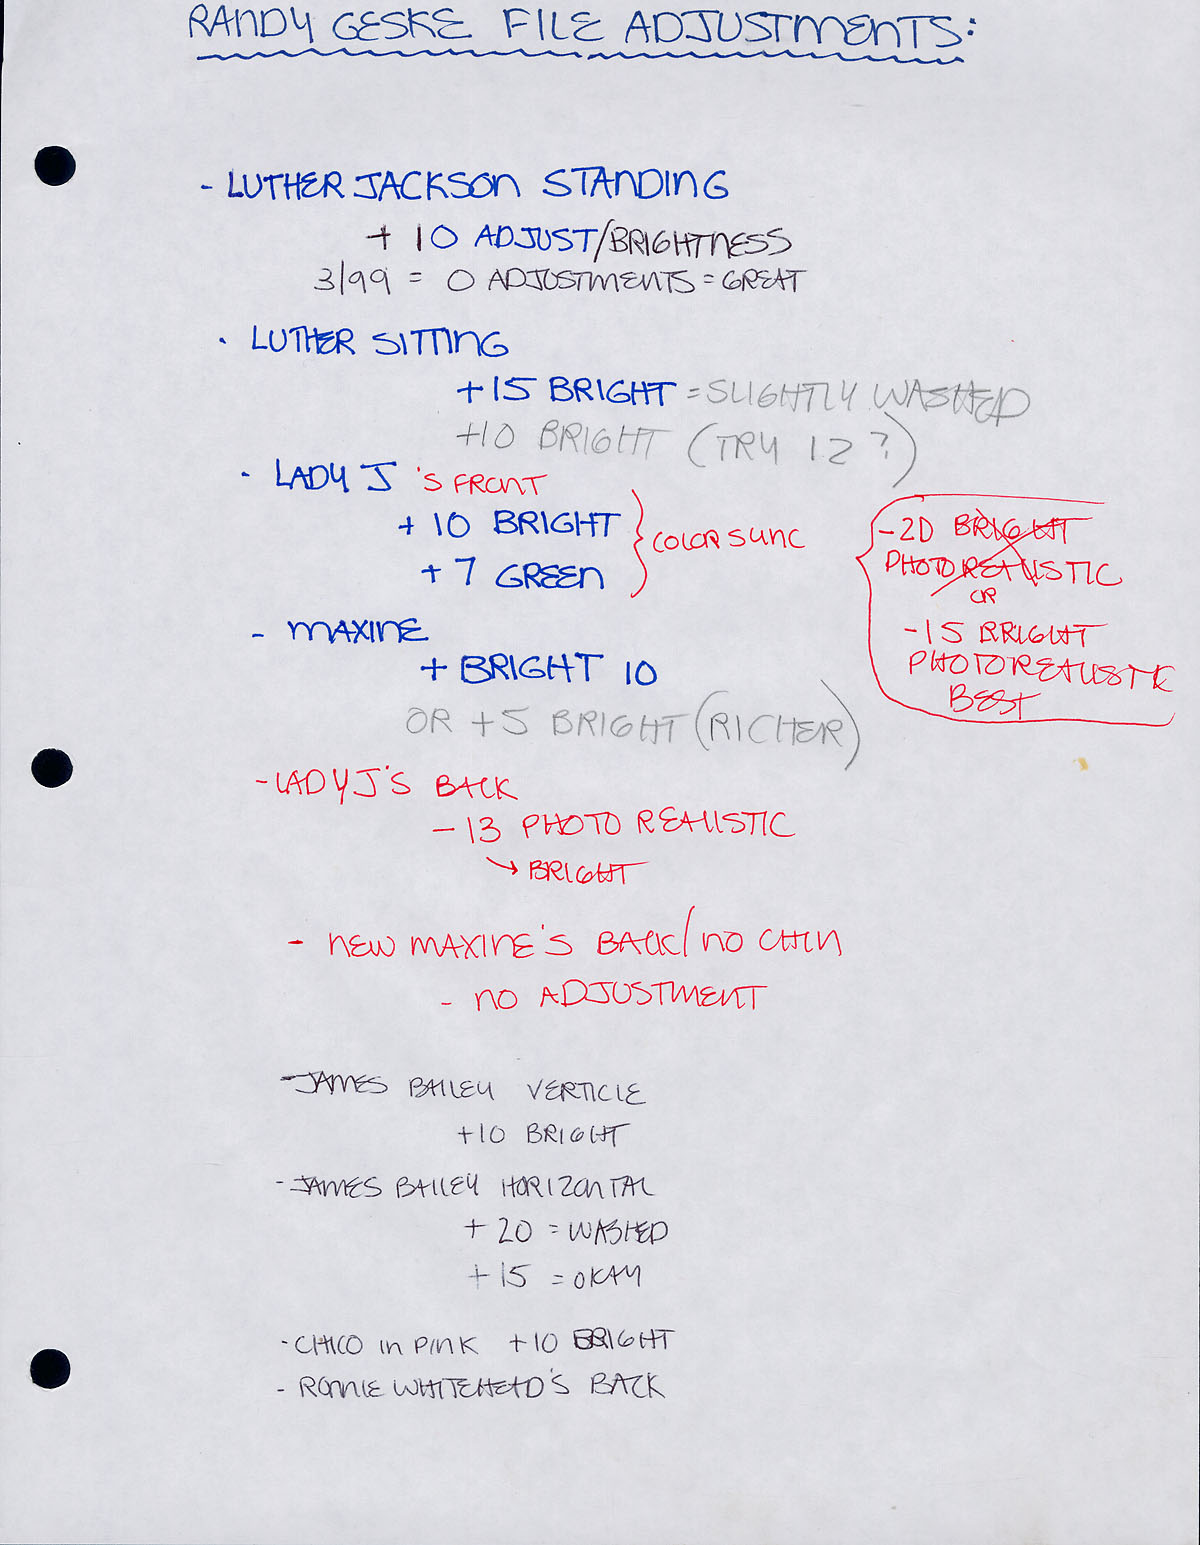 RANDY GESKE FILE ADJUSTMENTS:
- LUTHER JACKSON STANDING
+ 10 ADJUST/BRIGHTNESS
3/99 = 0 ADJUSTMENTS = GREAT
· LUTHER SITTING
+15 BRIGHT = SLIGHTLY WASHED
+10 BRIGHT (TRY 12?)
· LADY J 'S FRONT
+ 10 BRIGHT
+ 7 GREEN
} COLOR SYNC
-20 BRIGHT
PHOTO REALISTIC
OR
-15 BRIGHT
PHOTO REALISTIC
BEST
- MAXINE
+ BRIGHT 10
OR +5 BRIGHT (RICHER)
- LADY J'S BACK
- 13 PHOTO REALISTIC
→ BRIGHT
- NEW MAXINE'S BACK/NO CHIN
- NO ADJUSTMENT
- JAMES BAILEY VERTICLE
+10 BRIGHT
- JAMES BAILEY HORIZONTAL
+ 20 = WASHED
+ 15 = OKAY
- CHICO IN PINK +10 BRIGHT
- RONNIE WHITEHEAD'S BACK